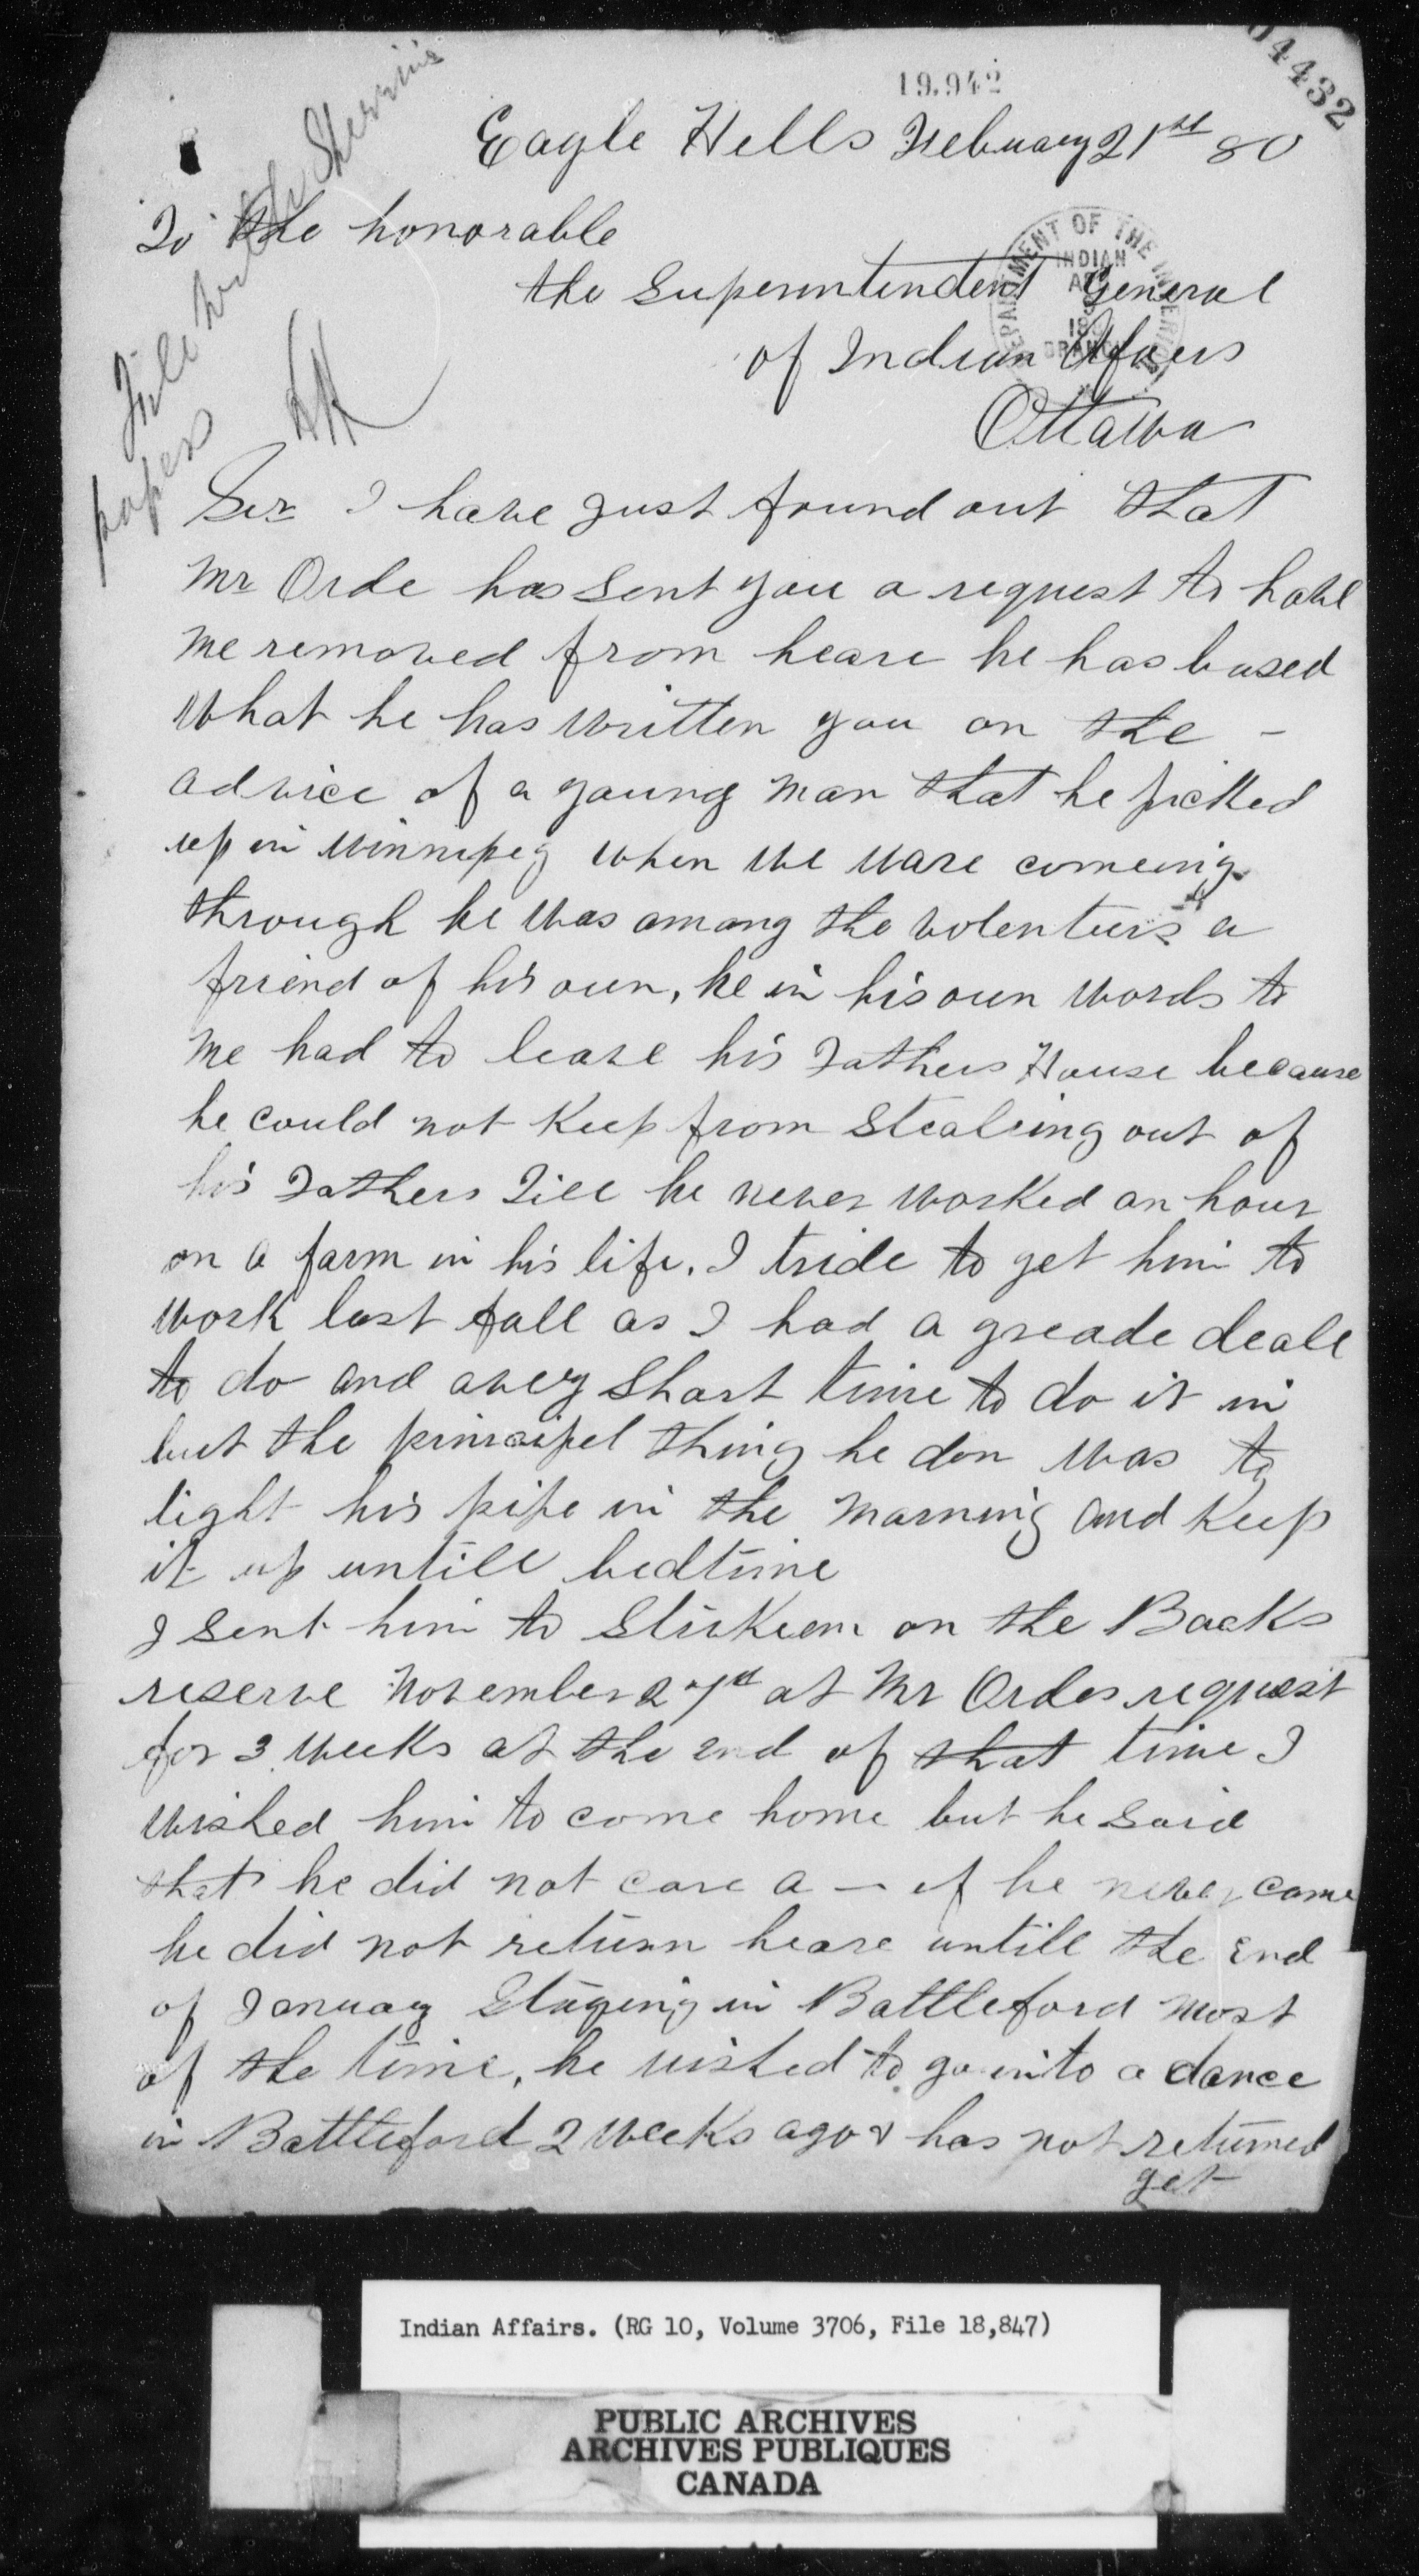 04432
19.942
Eagle Hills February 21st 80
To the honorable
the Superintendent General
of Indian Afairs
Ottawa
DEPARTMENT OF THE INTERIOR
INDIAN
BRANCH
File with Mr Sherrins
papers
Sir I have just found out that
Mr Orde has sent you a request to have
me removed from heare he has based
what he has written you on the -
advice of a young man that he picked
up in winnipeg when we ware comeing
through he was among the volenteers a
friend of his own, he in his own words to
me had to leave his Fathers House because
he could not Keep from Stealeing out of
his Fathers Till he never worked an hour
on a farm in his life. I tride to get him to
work last fall as I had a greade deale
to do and avery Short time to do it in
but the principel thing he don was to
light his pipe in the morning and Keep
it up untill bedtime
I sent him to on the Backs
reserve November 27d at Mr Ordes request
for 3 weeks at the end of that time I
wished him to come home but he Said
that he did not care a — if he never came
he did not return heare untill the End
of January Stayeing in Battleford most
of the time, he wished to go into a dance
in Battleford 2 weeks ago & has not returned
yet
Indian Affairs. (RG 10, Volume 3706, File 18,847)
PUBLIC ARCHIVES
ARCHIVES PUBLIQUES
CANADA